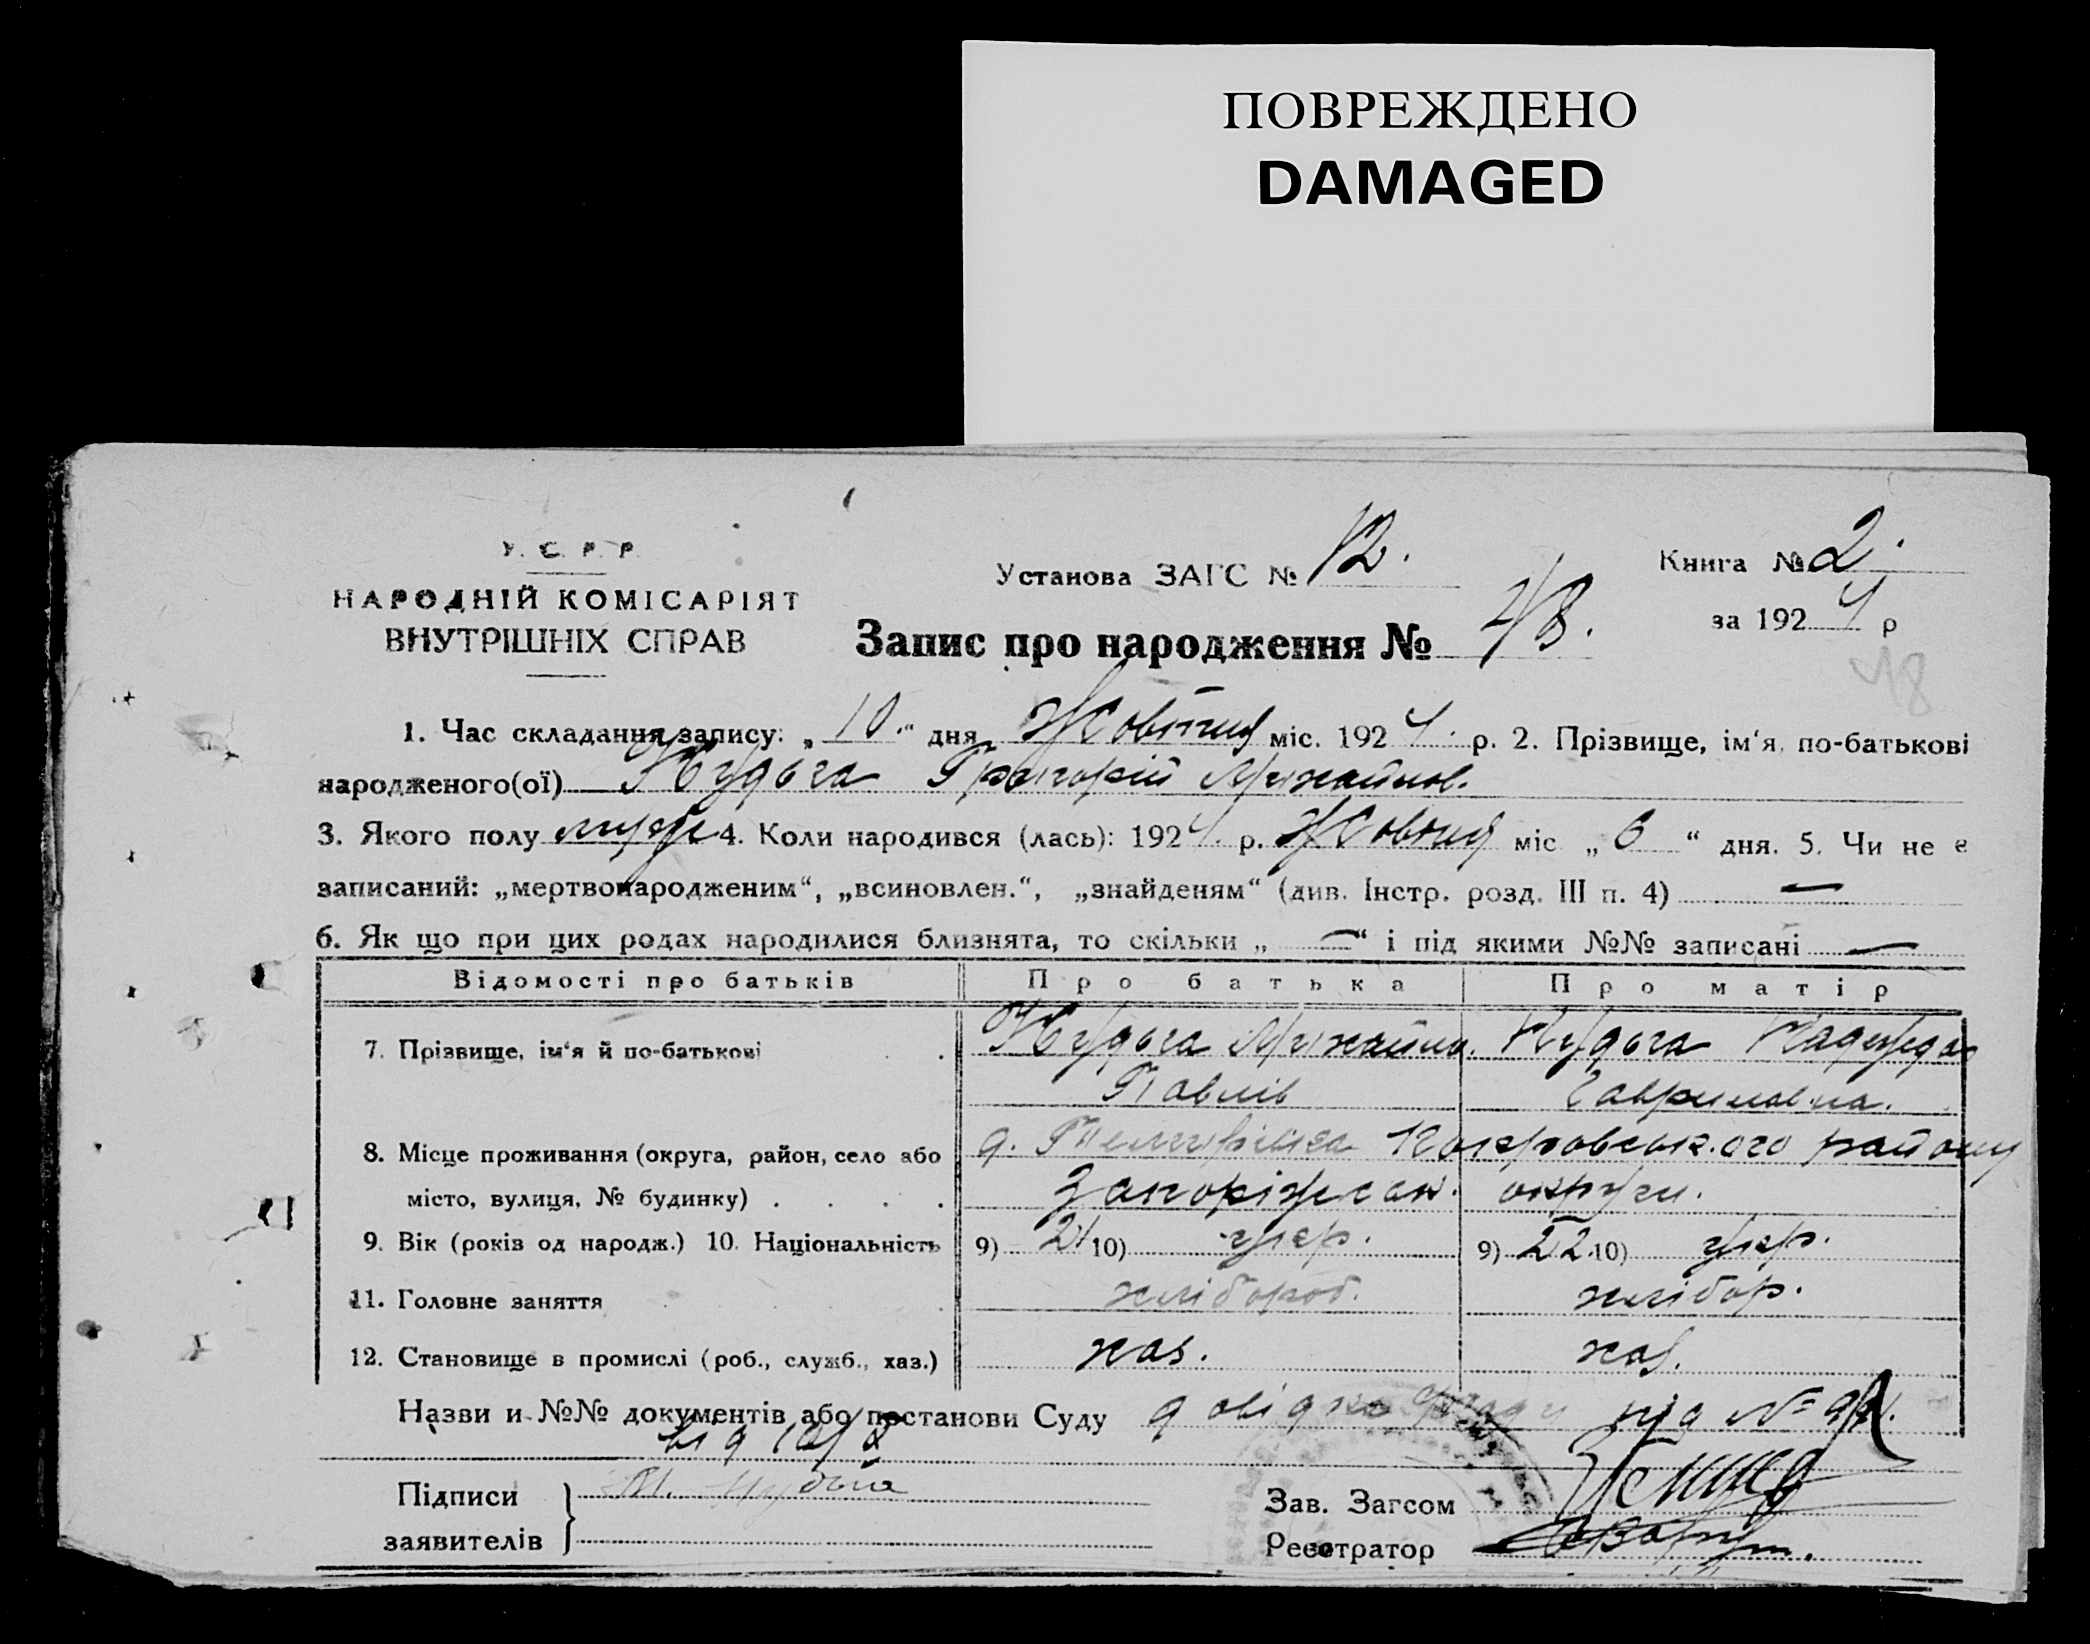 ПОВРЕЖДЕНО
DAMAGED
У. С. Р. Р.
НАРОДНІЙ КОМІСАРІЯТ
ВНУТРІШНІХ СПРАВ
Установа ЗАГС № 12.
Книга № 2.
за 1924 р
Запис про народження № 48.
48
1. Час складання запису: „10“ дня Жовтня міс. 1924. р. 2. Прізвище, ім‘я, по-батькові
народженого(ої) Кудьга Григорій Михайлов.
3. Якого полу муж 4. Коли народився (лась): 1924. р. Жовтня міс „6“ дня. 5. Чи не є
записаний: „мертвонародженим“, „всиновлен.“, „знайденям“ (див. Інстр. розд. III п. 4) —
6. Як що при цих родах народилися близнята, то скільки „—“ і під якими №№ записані —
Відомості про батьків Про батька Про матір
7. Прізвище, ім‘я й по-батькові Кудьга Михайло. Кудьга Надежда
Павлів Гавриловна.
8. Місце проживання (округа, район, село або Покровського району
місто, вулиця, № будинку) Запоріжськ. округи.
9. Вік (років од народж.) 10. Національність 9) 21 10) укр. 9) 22 10) укр.
11. Головне заняття хлібороб. хлібор.
12. Становище в промислі (роб., служб., хаз.) хаз. хаз.
Назви и №№ документів або постанови Суду довідка під №
від 10/X
Підписи М. Кудьга
заявителів
Зав. Загсом
Реєстратор